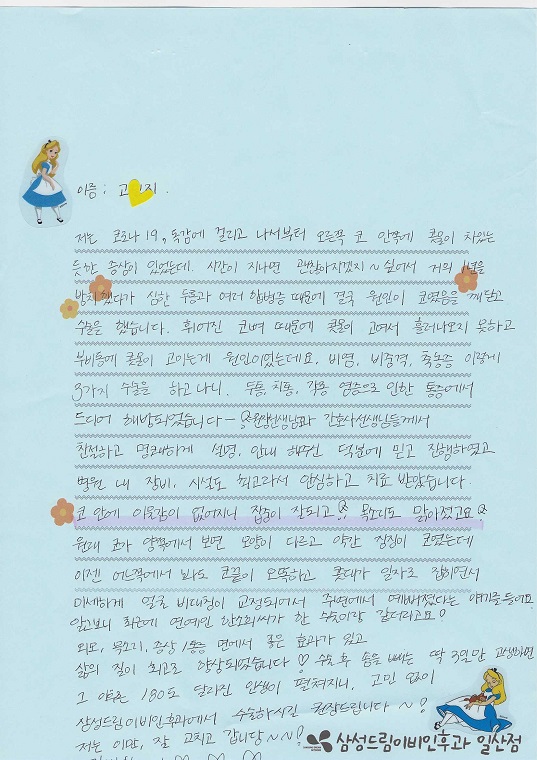 이름 : 고 지 .
저는 코로나 19, 독감에 걸리고 나서부터 오른쪽 코 안쪽에 콧물이 차있는
듯한 증상이 있었는데. 시간이 지나면 괜찮아지겠지~ 싶어서 거의 1년을
방치했다가 심한 두통과 여러 합병증 때문에 결국 원인이 코였음을 깨닫고
수술을 했습니다. 휘어진 코뼈 때문에 콧물이 고여서 흘러나오지 못하고
부비동에 콧물이 고이는게 원인이었는데요, 비염, 비중격, 축농증 이렇게
3가지 수술을 하고나니. 두통, 치통, 각종 염증으로 인한 통증에서
드디어 해방되었습니다~ 원장선생님과 간호사선생님들께서
친절하고 명쾌하게 설명, 안내 해주신 덕분에 믿고 진행하였고
병원 내 장비, 시설도 최고라서 안심하고 치료 받았습니다.
코 안에 이물감이 없어지니 잠이 잘되고 목소리도 맑아졌고요
원래 코가 양쪽에서 보면 모양이 다르고 약간 짐짐이 코였는데
이젠 어느쪽에서 봐도 코끝이 오똑하고 콧대가 일자로 잡히면서
미세하게 얼굴 비대칭이 교정되어서 주변에서 예뻐졌다는 얘기를 들어요.
알고보니 최근에 연예인 한소희씨가 한 수술이랑 같더라고요!
외모, 목소리, 증상 1통증 면에서 좋은 효과가 있고
삶의 질이 최고로 향상되었습니다♡ 수술 후 솜을 빼는 딱 3일만 고생하면
그 이후론 180도 달라진 인생이 펼쳐지니, 고민 없이
삼성드림이비인후과에서 수술하시길 권장드립니다 ~!
저는 이만, 잘 고치고 갑니당 ~~!
삼성드림이비인후과 일산점